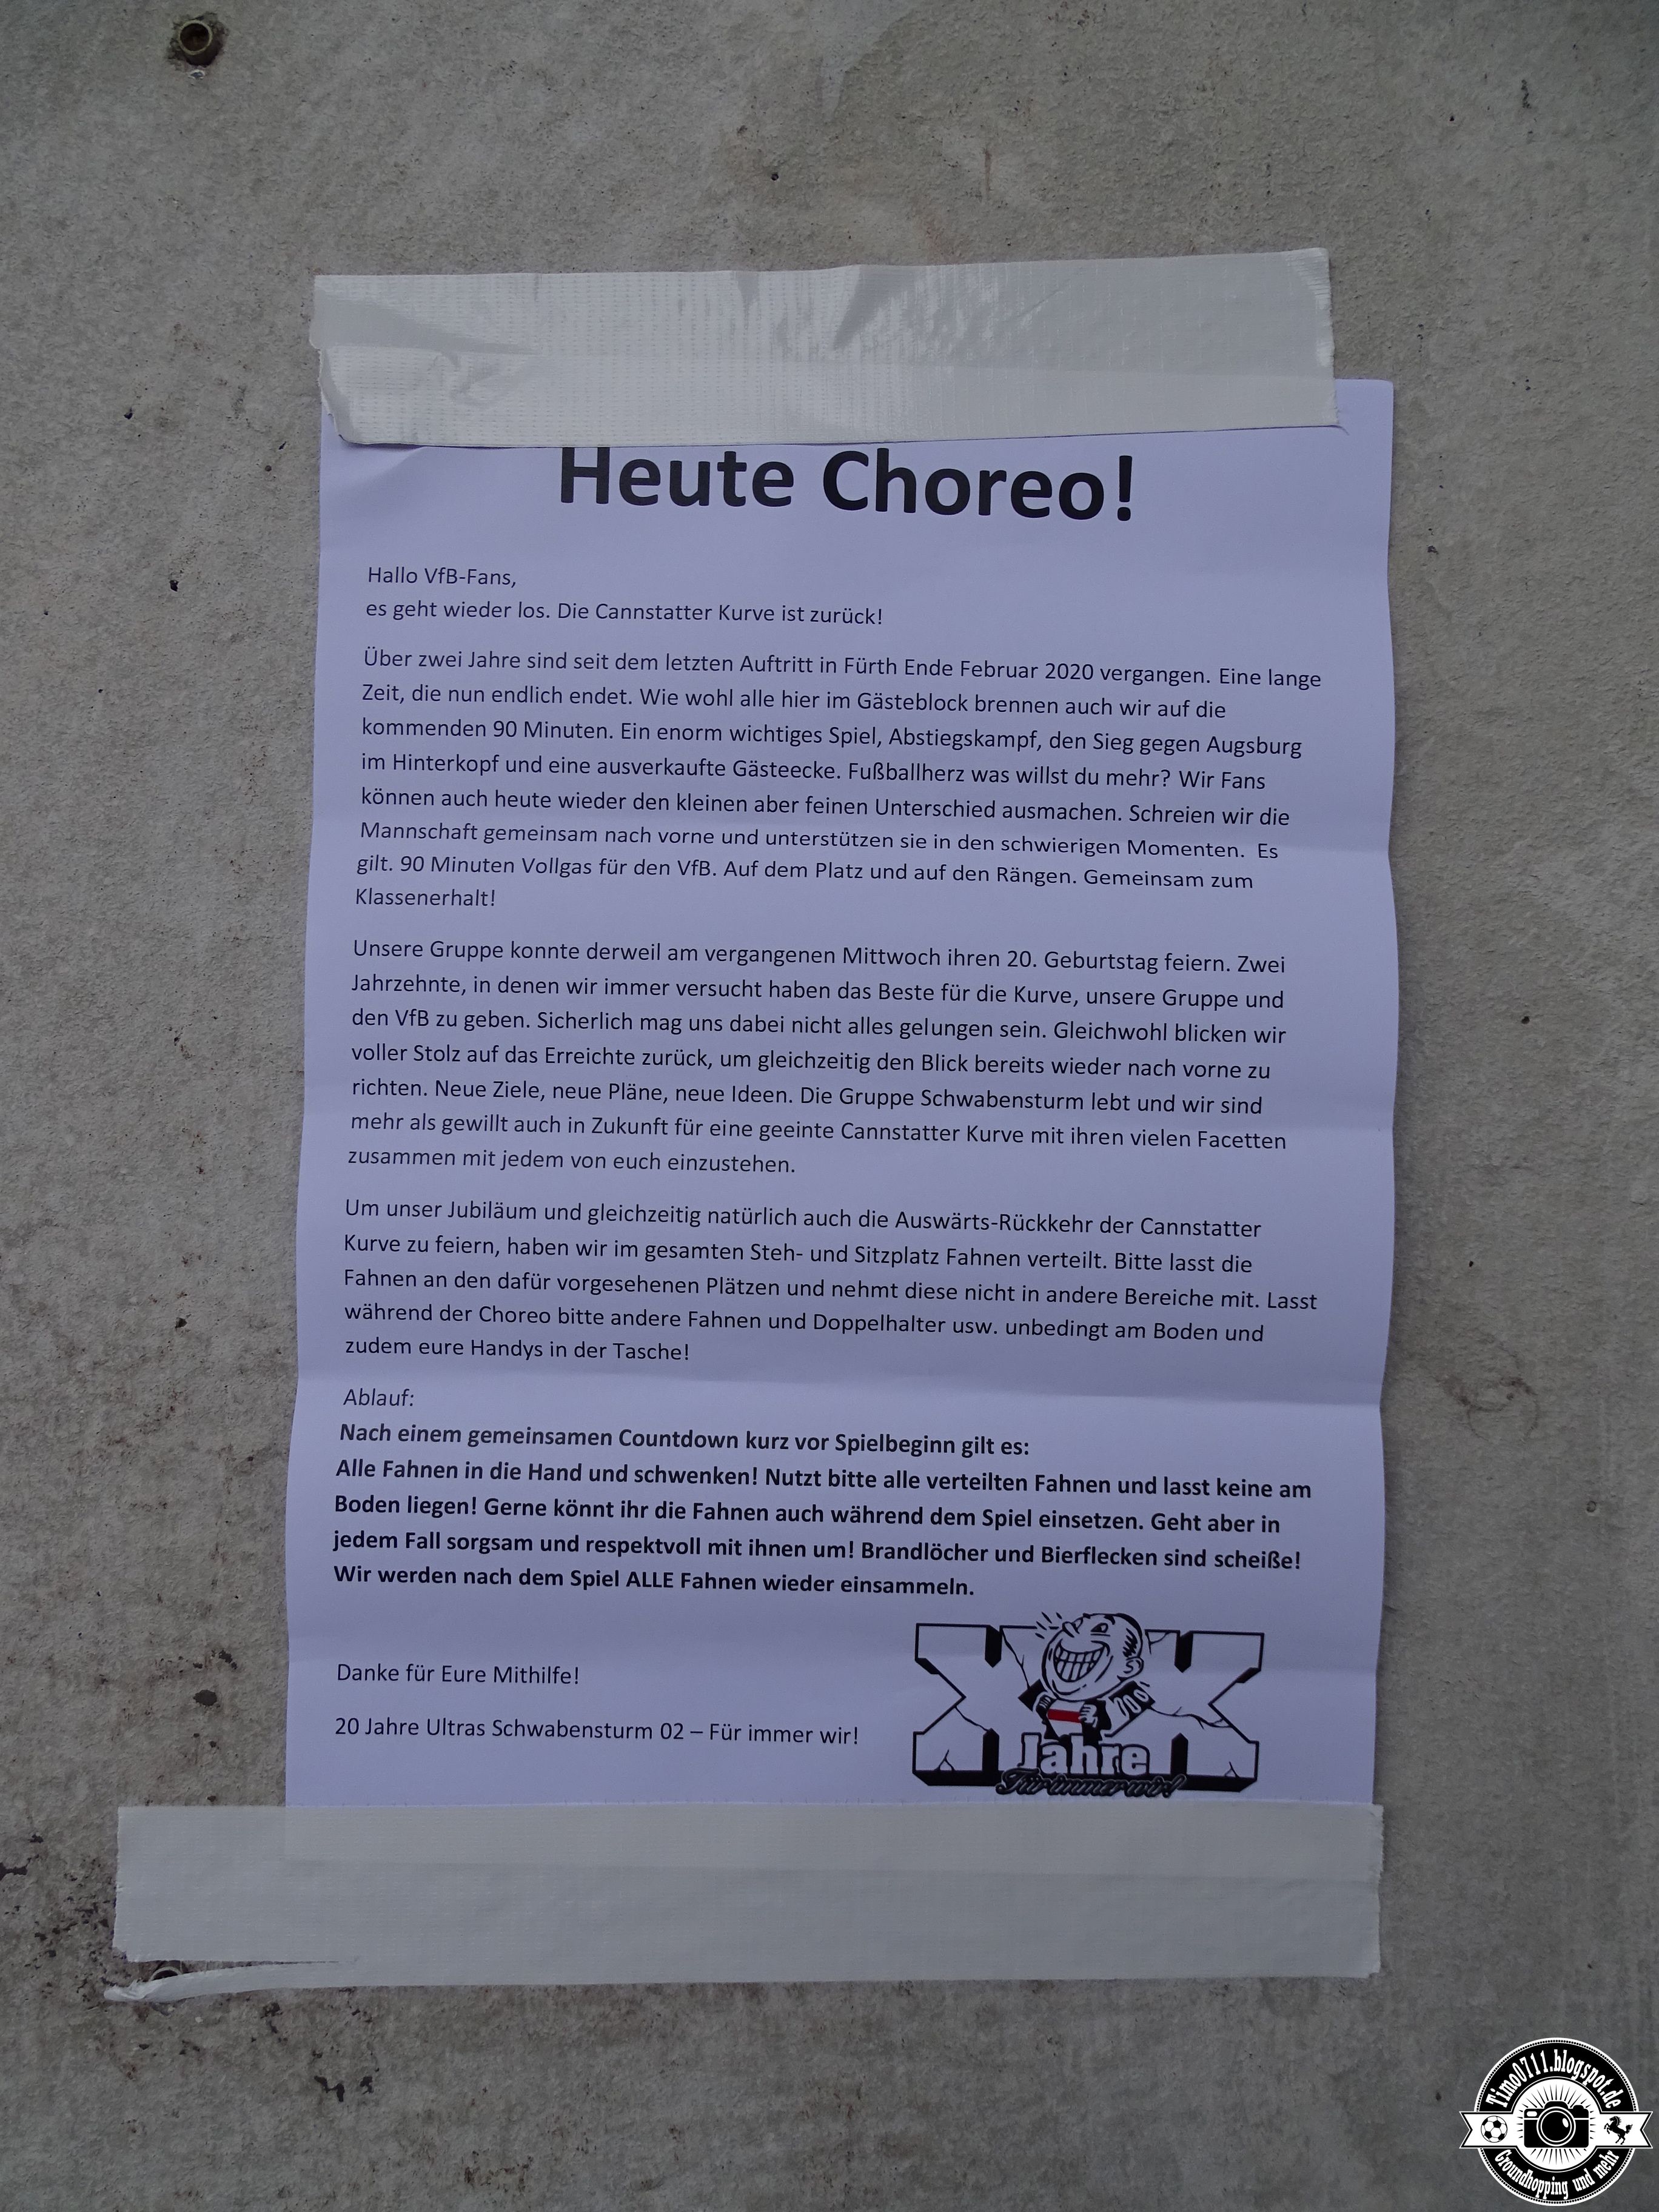 Heute Choreo!
Hallo VfB-Fans,
es geht wieder los. Die Cannstatter Kurve ist zurück!
Über zwei Jahre sind seit dem letzten Auftritt in Fürth Ende Februar 2020 vergangen. Eine lange
Zeit, die nun endlich endet. Wie wohl alle hier im Gästeblock brennen auch wir auf die
kommenden 90 Minuten. Ein enorm wichtiges Spiel, Abstiegskampf, den Sieg gegen Augsburg
im Hinterkopf und eine ausverkaufte Gästeecke. Fußballherz was willst du mehr? Wir Fans
können auch heute wieder den kleinen aber feinen Unterschied ausmachen. Schreien wir die
Mannschaft gemeinsam nach vorne und unterstützen sie in den schwierigen Momenten. Es
gilt. 90 Minuten Vollgas für den VfB. Auf dem Platz und auf den Rängen. Gemeinsam zum
Klassenerhalt!
Unsere Gruppe konnte derweil am vergangenen Mittwoch ihren 20. Geburtstag feiern. Zwei
Jahrzehnte, in denen wir immer versucht haben das Beste für die Kurve, unsere Gruppe und
den VfB zu geben. Sicherlich mag uns dabei nicht alles gelungen sein. Gleichwohl blicken wir
voller Stolz auf das Erreichte zurück, um gleichzeitig den Blick bereits wieder nach vorne zu
richten. Neue Ziele, neue Pläne, neue Ideen. Die Gruppe Schwabensturm lebt und wir sind
mehr als gewillt auch in Zukunft für eine geeinte Cannstatter Kurve mit ihren vielen Facetten
zusammen mit jedem von euch einzustehen.
Um unser Jubiläum und gleichzeitig natürlich auch die Auswärts-Rückkehr der Cannstatter
Kurve zu feiern, haben wir im gesamten Steh- und Sitzplatz Fahnen verteilt. Bitte lasst die
Fahnen an den dafür vorgesehenen Plätzen und nehmt diese nicht in andere Bereiche mit. Lasst
während der Choreo bitte andere Fahnen und Doppelhalter usw. unbedingt am Boden und
zudem eure Handys in der Tasche!
Ablauf:
Nach einem gemeinsamen Countdown kurz vor Spielbeginn gilt es:
Alle Fahnen in die Hand und schwenken! Nutzt bitte alle verteilten Fahnen und lasst keine am
Boden liegen! Gerne könnt ihr die Fahnen auch während dem Spiel einsetzen. Geht aber in
jedem Fall sorgsam und respektvoll mit ihnen um! Brandlöcher und Bierflecken sind scheiße!
Wir werden nach dem Spiel ALLE Fahnen wieder einsammeln.
Danke für Eure Mithilfe!
20 Jahre Ultras Schwabensturm 02 – Für immer wir!
XX
Jahre
Für immer wir!
Timo0711.blogspot.de
Groundhopping und mehr